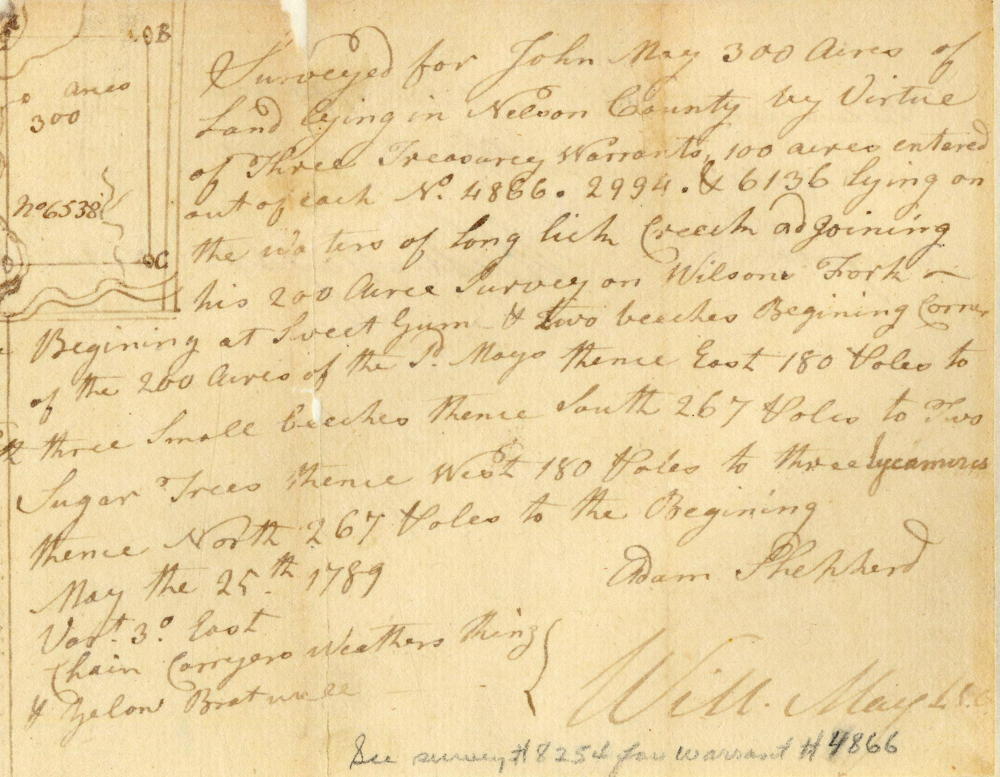 B
acres
300
No 6538
C
Surveyed for John May 300 Acres of
Land lying in Nelson County by Virtue
of Three Treasurey Warrants, 100 acres entered
out of each No. 4866. 2994. & 6136 lying on
the waters of Long lick Creech adjoining
his 200 Acree Survey on Wilsons Fork
Begining at Sweet Gum & two beeches Begining Corner
of the 200 Acres of the Sd. Mays thence East 180 Poles to
three Small beeches thence South 267 Poles to Two
Sugar Trees thence West 180 Poles to three Sycamores
thence North 267 Poles to the Begining
May the 25th 1789
Adam Shepherd
Vart. 3o. East
Chain Carryers Weathers
&
Will. May
See survey #8254 for warrant #4866